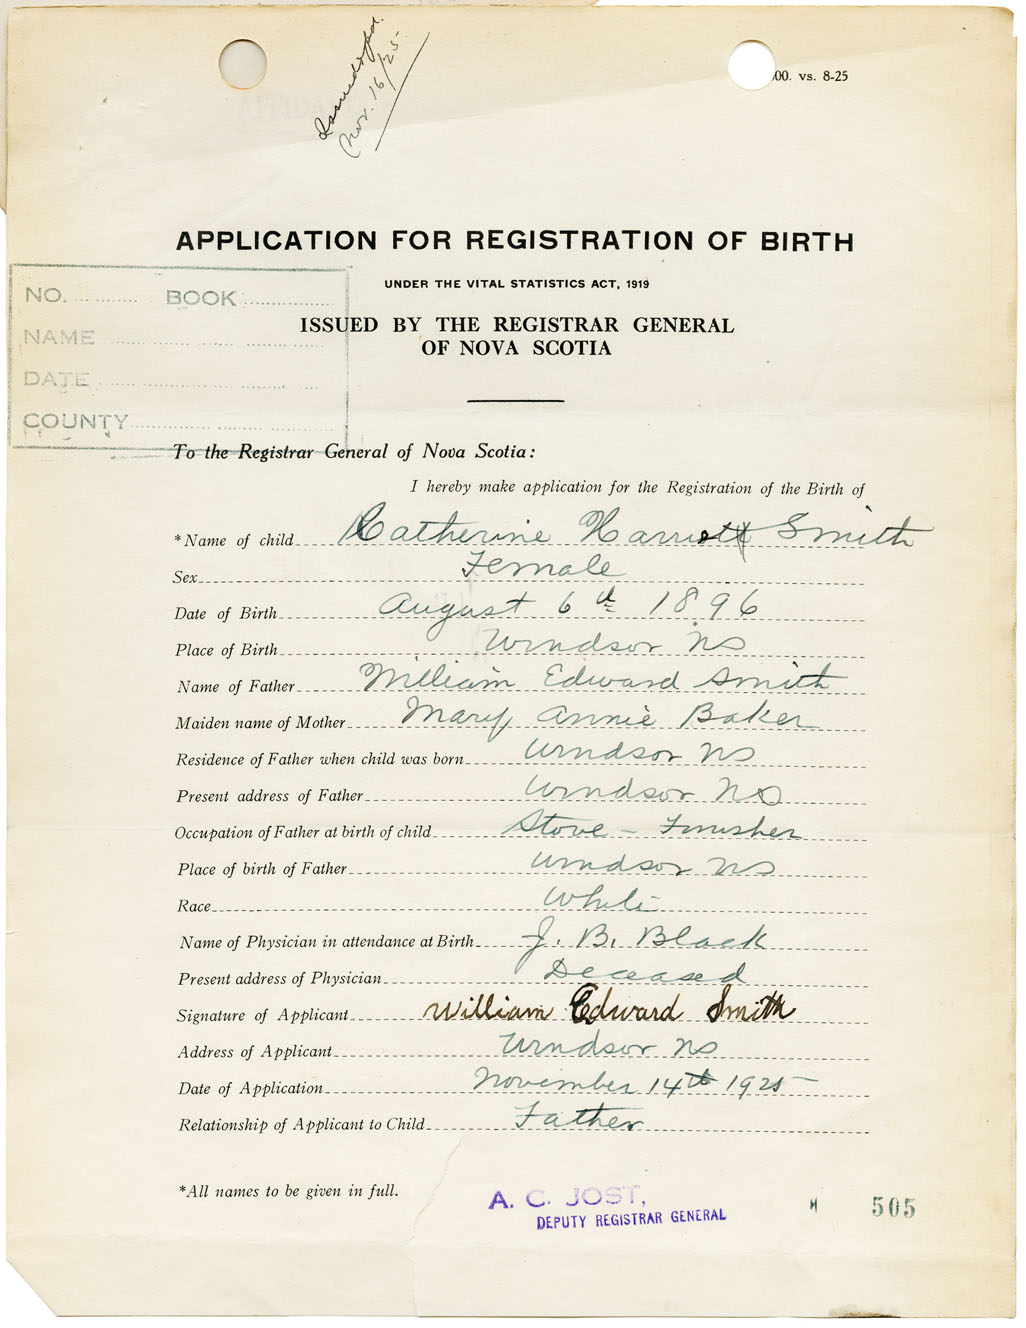 Issued & pd.
Nov. 16/25.
00. vs. 8-25
APPLICATION FOR REGISTRATION OF BIRTH
UNDER THE VITAL STATISTICS ACT, 1919
ISSUED BY THE REGISTRAR GENERAL
OF NOVA SCOTIA
NO. BOOK
NAME
DATE
COUNTY
To the Registrar General of Nova Scotia:
I hereby make application for the Registration of the Birth of
*Name of child Catherine Harriett Smith
Sex Female
Date of Birth August 6th 1896
Place of Birth Windsor NS
Name of Father William Edward Smith
Maiden name of Mother Mary Annie Baker
Residence of Father when child was born Windsor NS
Present address of Father Windsor NS
Occupation of Father at birth of child Stove - Finisher
Place of birth of Father Windsor NS
Race White
Name of Physician in attendance at Birth J. B. Black
Present address of Physician Deceased
Signature of Applicant William Edward Smith
Address of Applicant Windsor NS
Date of Application November 14th 1925
Relationship of Applicant to Child Father
*All names to be given in full.
A. C. JOST,
DEPUTY REGISTRAR GENERAL
505